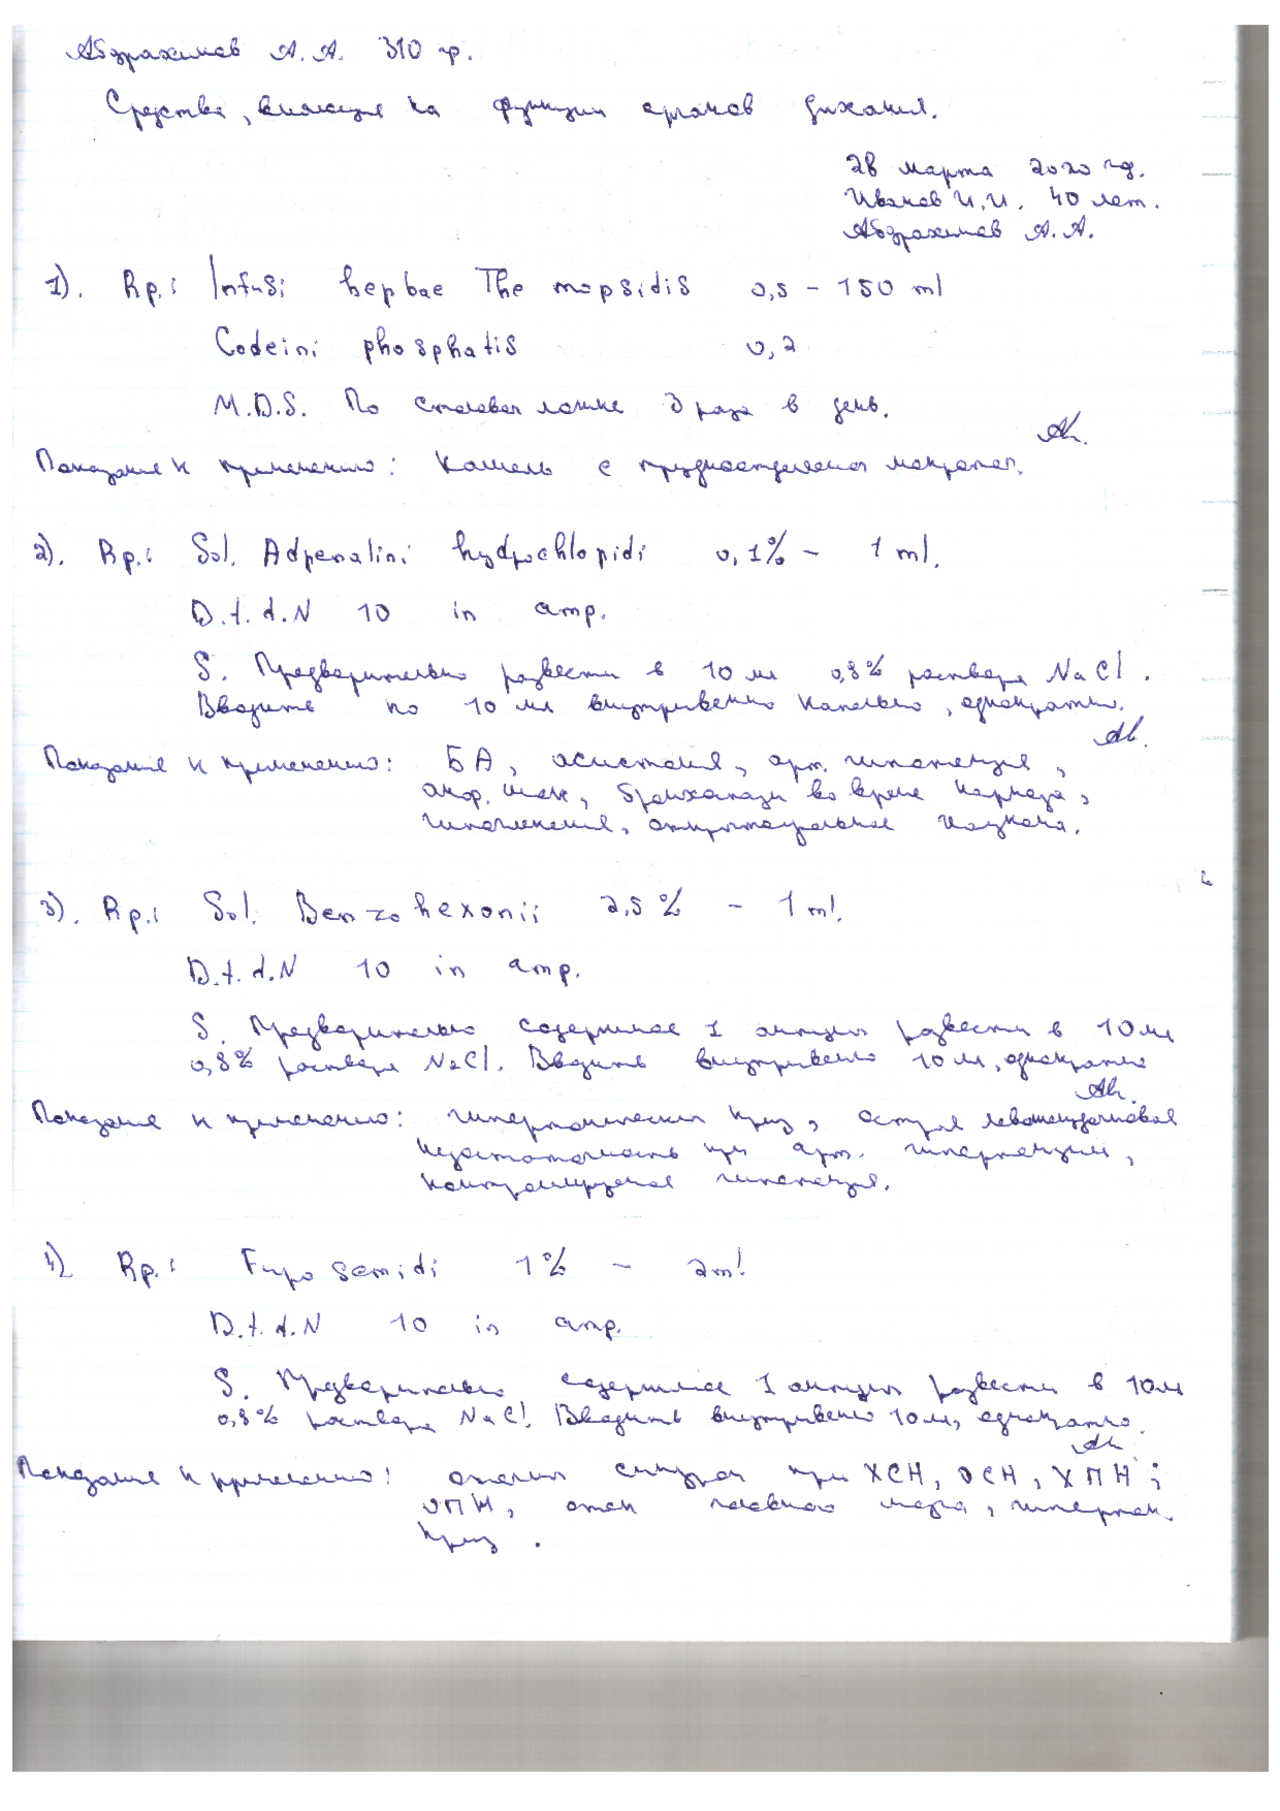 Абдрахимов А.А. 310 гр.
Средства, влияющие на функции органов дыхания.
28 марта 2020 год.
Иванов И.И. 40 лет.
Абдрахимов А.А.
1). Rp.: Infusi hepbae Thermopsidis 0,5 - 150 ml
Codeini phosphatis 0,2
M.D.S. По столовой ложке 3 раза в день.
Показания к применению: Кашель с трудноотделяемой мокротой.
2). Rp.: Sol. Adpenalini hydpochlopidi 0,1% - 1 ml.
D.t.d.N 10 in amp.
S. Предварительно развести в 10 мл 0,9% раствора NaCl.
Вводить по 10 мл внутривенно капельно, однократно.
Показания к применению: БА, асистолия, арт. гипотензия,
анаф. шок, бронхоспазм во время наркоза,
гипогликемия, открытоугольная глаукома.
3). Rp.: Sol. Benzohexonii 2,5% - 1 ml.
D.t.d.N 10 in amp.
S. Предварительно содержимое 1 ампулы развести в 10 мл
0,9% раствора NaCl. Вводить внутривенно 10 мл, однократно
Показания к применению: гипертонический криз, острая левожелудочковая
недостаточность при арт. гипертензии,
контролируемая гипотензия.
4). Rp.: Fuposemidi 1% - 2ml
D.t.d.N 10 in amp.
S. Предварительно содержимое 1 ампулы развести в 10мл
0,9% раствора NaCl. Вводить внутривенно 10 мл, однократно.
Показания к применению: отечный синдром при ХСН, ОСН, ХПН;
ОПН, отек головного мозга, гипертон.
криз.